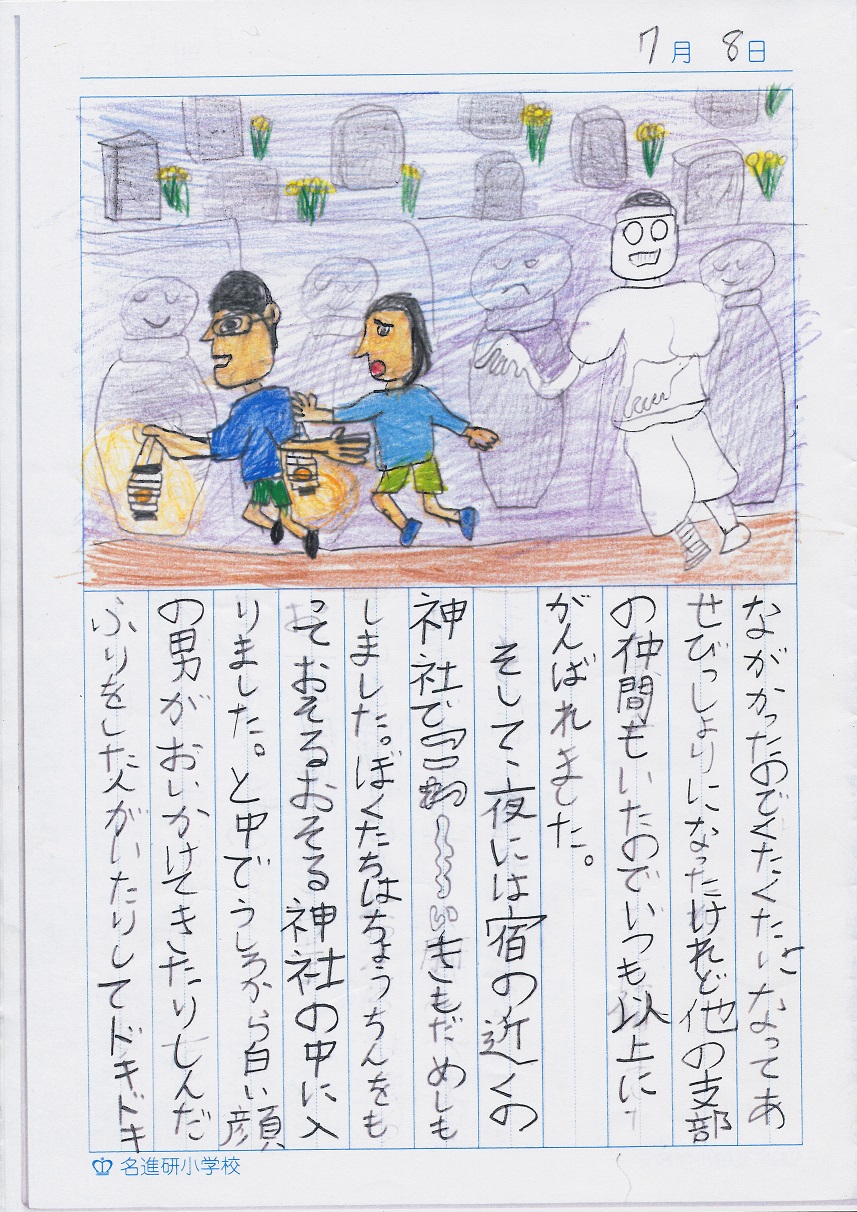 7月 8日
ながかったのでくたくたになってあ
せびっしょりになったけれど他の支部
の仲間もいたのでいつも以上に
がんばれました。
そして、夜には宿の近くの
神社できもだめしも
しました。ぼくたちはちょうちんをも
っておそるおそる神社の中に入
りました。と中でうしろから白い顔
の男がおいかけてきたりしんだ
ふりをした人がいたりしてドキドキ
名進研小学校